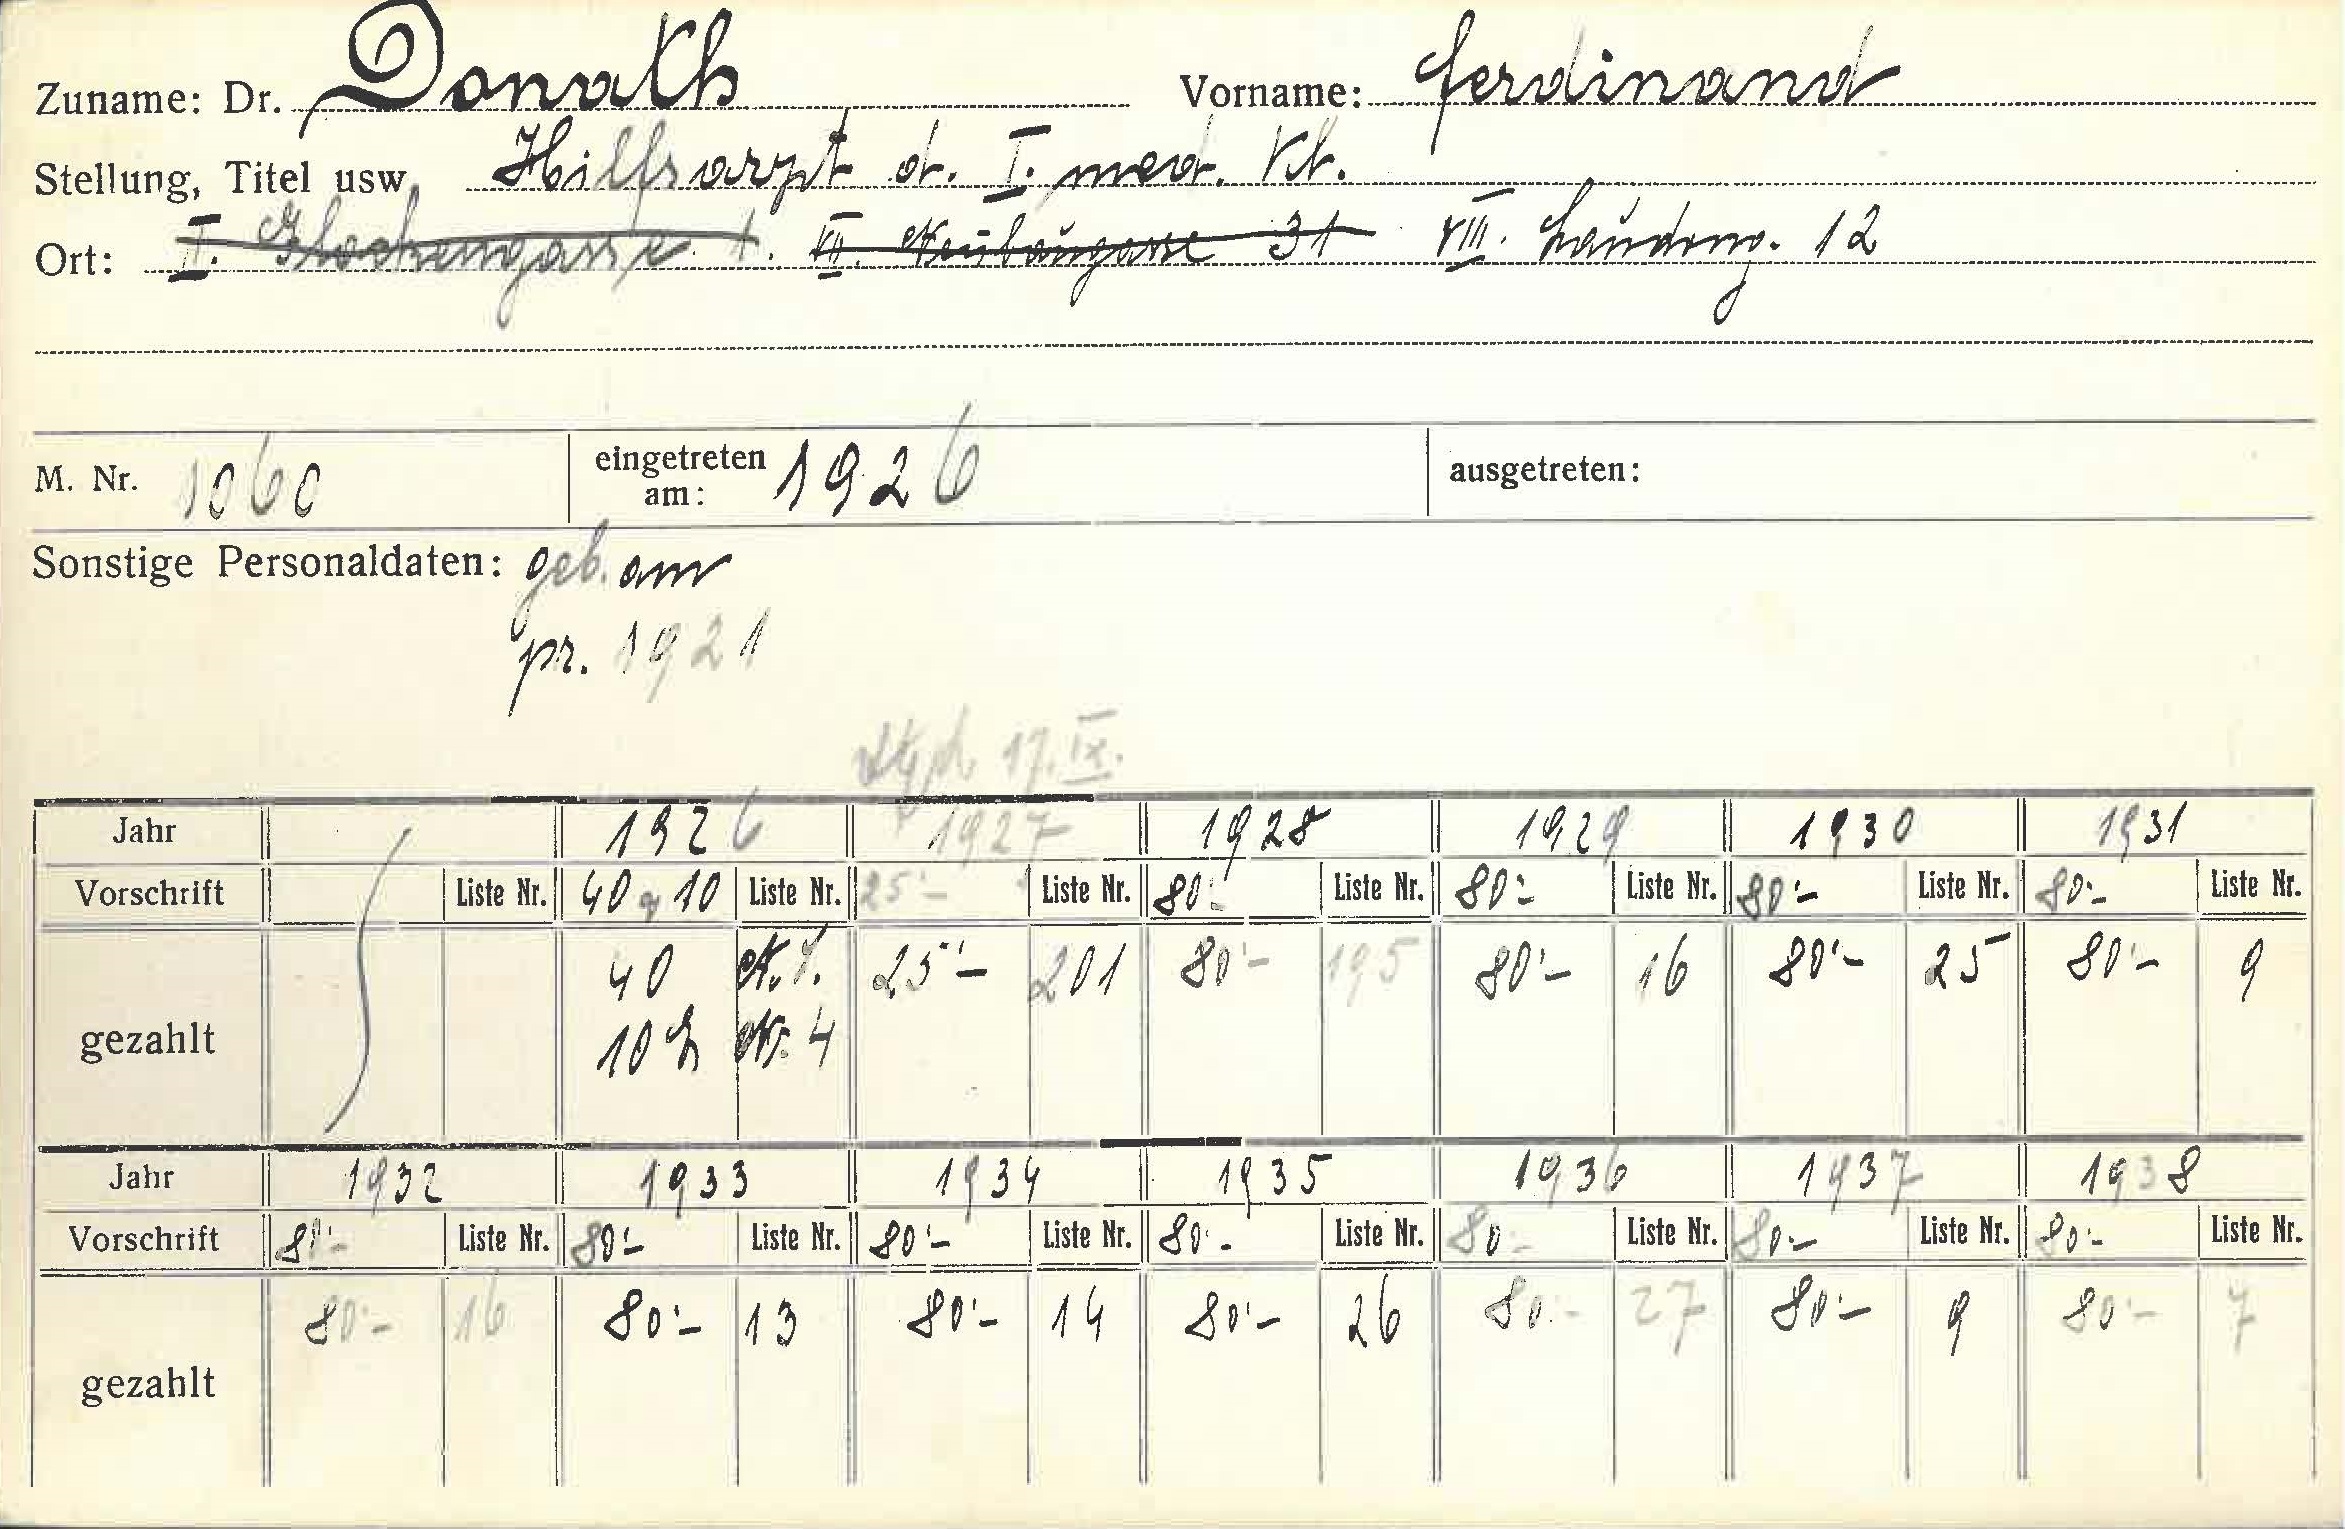 Zuname: Dr. Donath Vorname: Ferdinand
Stellung, Titel usw. Hilfsarzt d. I. med. Kl.
Ort: II. Glockengasse 1. VII. Neubaugasse 31 VIII. Laudong. 12
M. Nr. 1060 eingetreten am: 1926 ausgetreten:
Sonstige Personaldaten: geb. am
pr. 1921
17. IX.
Jahr 1926 1927 1928 1929 1930 1931
Vorschrift Liste Nr. 40 10 Liste Nr. 25'- Liste Nr. 80'- Liste Nr. 80'- Liste Nr. 80'- Liste Nr. 80'- Liste Nr.
gezahlt 40 25'- 201 80'- 195 80'- 16 80'- 25 80'- 9
10 4
Jahr 1932 1933 1934 1935 1936 1937 1938
Vorschrift 80'- Liste Nr. 80'- Liste Nr. 80'- Liste Nr. 80'- Liste Nr. 80'- Liste Nr. 80'- Liste Nr. 80'- Liste Nr.
gezahlt 80'- 16 80'- 13 80'- 14 80'- 26 80'- 27 80'- 9 80'- 7